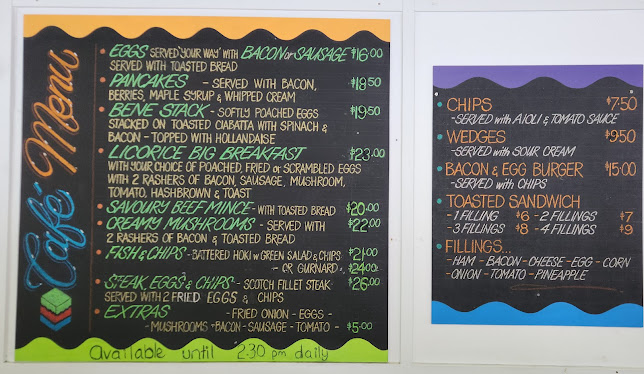 Café Menu
• EGGS SERVED 'YOUR WAY' WITH BACON OR SAUSAGE $16.00
SERVED WITH TOASTED BREAD
• PANCAKES - SERVED WITH BACON, $18.50
BERRIES, MAPLE SYRUP & WHIPPED CREAM
• BENE STACK - SOFTLY POACHED EGGS $19.50
STACKED ON TOASTED CIABATTA WITH SPINACH &
BACON - TOPPED WITH HOLLANDAISE
• LICORICE BIG BREAKFAST $23.00
WITH YOUR CHOICE OF POACHED, FRIED OR SCRAMBLED EGGS
WITH 2 RASHERS OF BACON, SAUSAGE, MUSHROOM,
TOMATO, HASHBROWN & TOAST
• SAVOURY BEEF MINCE - WITH TOASTED BREAD $20.00
• CREAMY MUSHROOMS - SERVED WITH $22.00
2 RASHERS OF BACON & TOASTED BREAD
• FISH & CHIPS - BATTERED HOKI W GREEN SALAD & CHIPS $21.00
- OR GURNARD - $24.00
• STEAK, EGGS & CHIPS - SCOTCH FILLET STEAK $26.00
SERVED WITH 2 FRIED EGGS & CHIPS
• EXTRAS - FRIED ONION - EGGS -
- MUSHROOMS - BACON - SAUSAGE - TOMATO - $5.00
Available until 2.30 pm daily
• CHIPS $7.50
- SERVED with AIOLI & TOMATO SAUCE
• WEDGES $9.50
- SERVED with SOUR CREAM
• BACON & EGG BURGER $15.00
- SERVED with CHIPS
• TOASTED SANDWICH
- 1 FILLING $6 - 2 FILLINGS $7
- 3 FILLINGS $8 - 4 FILLINGS $9
• FILLINGS...
- HAM - BACON - CHEESE - EGG - CORN
- ONION - TOMATO - PINEAPPLE